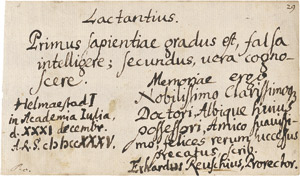 29
Lactantius.
Primus sapientiae gradus est, falsa
intelligere; secundus, vera cogno-
scere.
Memoriae ergo
Helmaestad I
in Academia Iulia,
d. XXXI decembr.
Nobilissimo Clarissimoq;
Doctori Albique huius
possessori, Amico suavis-
simo, felices rerum successus
precatus scrib.
Erhardus Reuschius, Prorector.